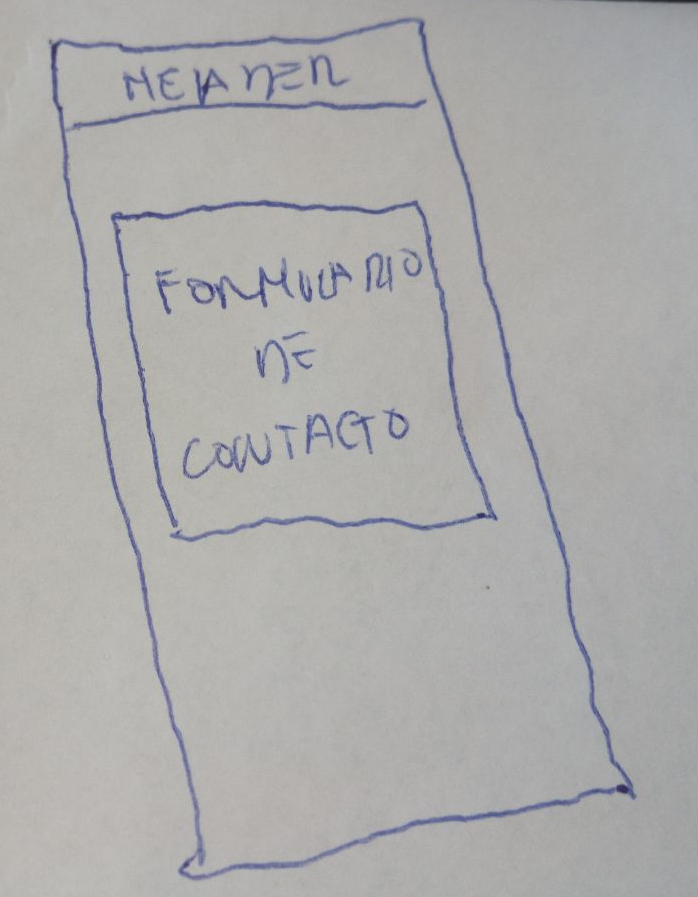 HEADER
FORMULARIO
DE
CONTACTO